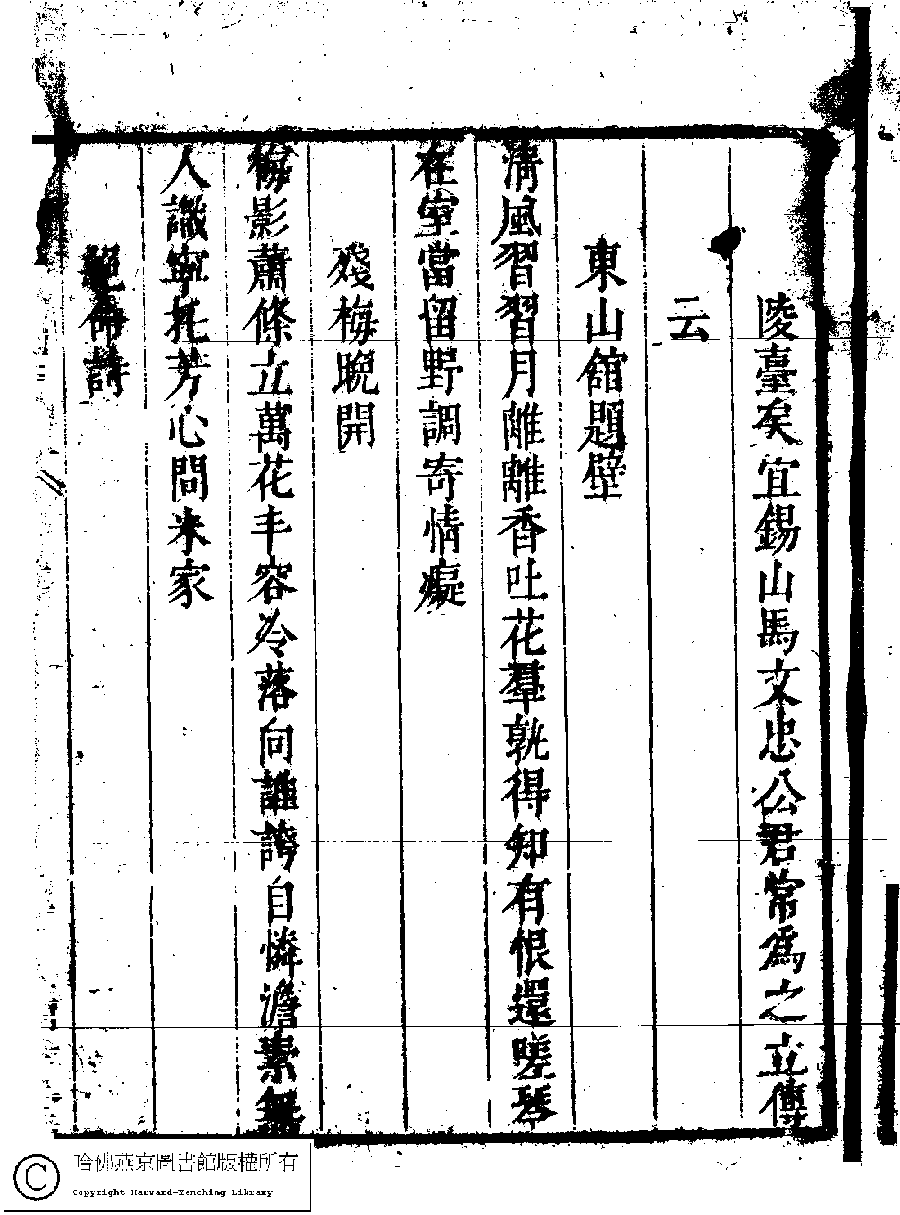 陵臺矣宜錫山馬文忠公君常爲之立傳
云
東山館題壁
清風習習月離離香吐花羣孰得知有恨還嗟琴
在室當留野調寄情癡
殘梅晚開
梅影蕭條立萬花丰容冷落向誰誇自憐澹素無
人識寧托芳心問米家
絕命詩
哈佛燕京圖書館版權所有
Copyright Harvard-Yenching Library